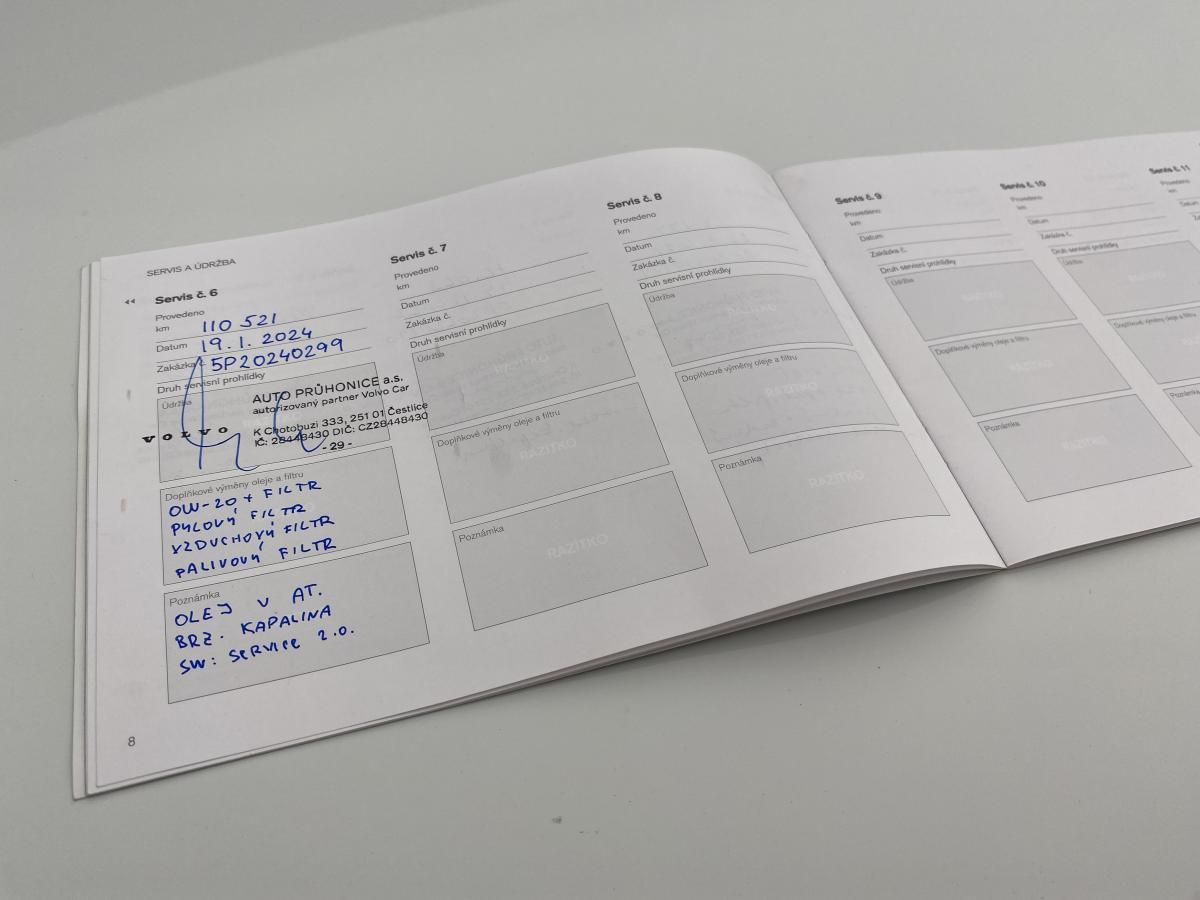 SERVIS A ÚDRŽBA
◂◂ Servis č. 6
Provedeno
km 110 521
Datum 19. 1. 2024
Zakázka č. 5P20240299
Druh servisní prohlídky
Údržba
VOLVO
AUTO PRŮHONICE a.s.
autorizovaný partner Volvo Car
K Chotobuzi 333, 251 01 Čestlice
IČ: 28448430 DIČ: CZ28448430
- 29 -
Doplňkové výměny oleje a filtru
OW-20 + FILTR
PYLOVÝ FILTR
VZDUCHOVÝ FILTR
PALIVOVÝ FILTR
Poznámka
OLEJ V AT.
BRZ. KAPALINA
SW: SERVICE 2.0.
8
Servis č. 7
Provedeno
km
Datum
Zakázka č.
Druh servisní prohlídky
Údržba
RAZÍTKO
Doplňkové výměny oleje a filtru
RAZÍTKO
Poznámka
RAZÍTKO
Servis č. 8
Provedeno
km
Datum
Zakázka č.
Druh servisní prohlídky
Údržba
RAZÍTKO
Doplňkové výměny oleje a filtru
RAZÍTKO
Poznámka
RAZÍTKO
Servis č. 9
Provedeno
km
Datum
Zakázka č.
Druh servisní prohlídky
Údržba
RAZÍTKO
Doplňkové výměny oleje a filtru
RAZÍTKO
Poznámka
RAZÍTKO
Servis č. 10
Provedeno
km
Datum
Zakázka č.
Druh servisní prohlídky
Údržba
Doplňkové výměny oleje a filtru
Poznámka
Servis č. 11
Provedeno
km
Datum